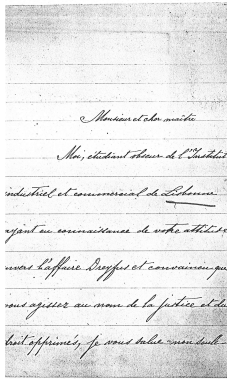 Monsieur et cher maître
Moi, étudiant obscur de l'Institut
industriel et commercial de Lisbonne
ayant eu connaissance de votre attitude
envers l'affaire Dreyfus et convaincu que
vous agissez au nom de la justice et du
droit opprimés, je vous salue non seule-